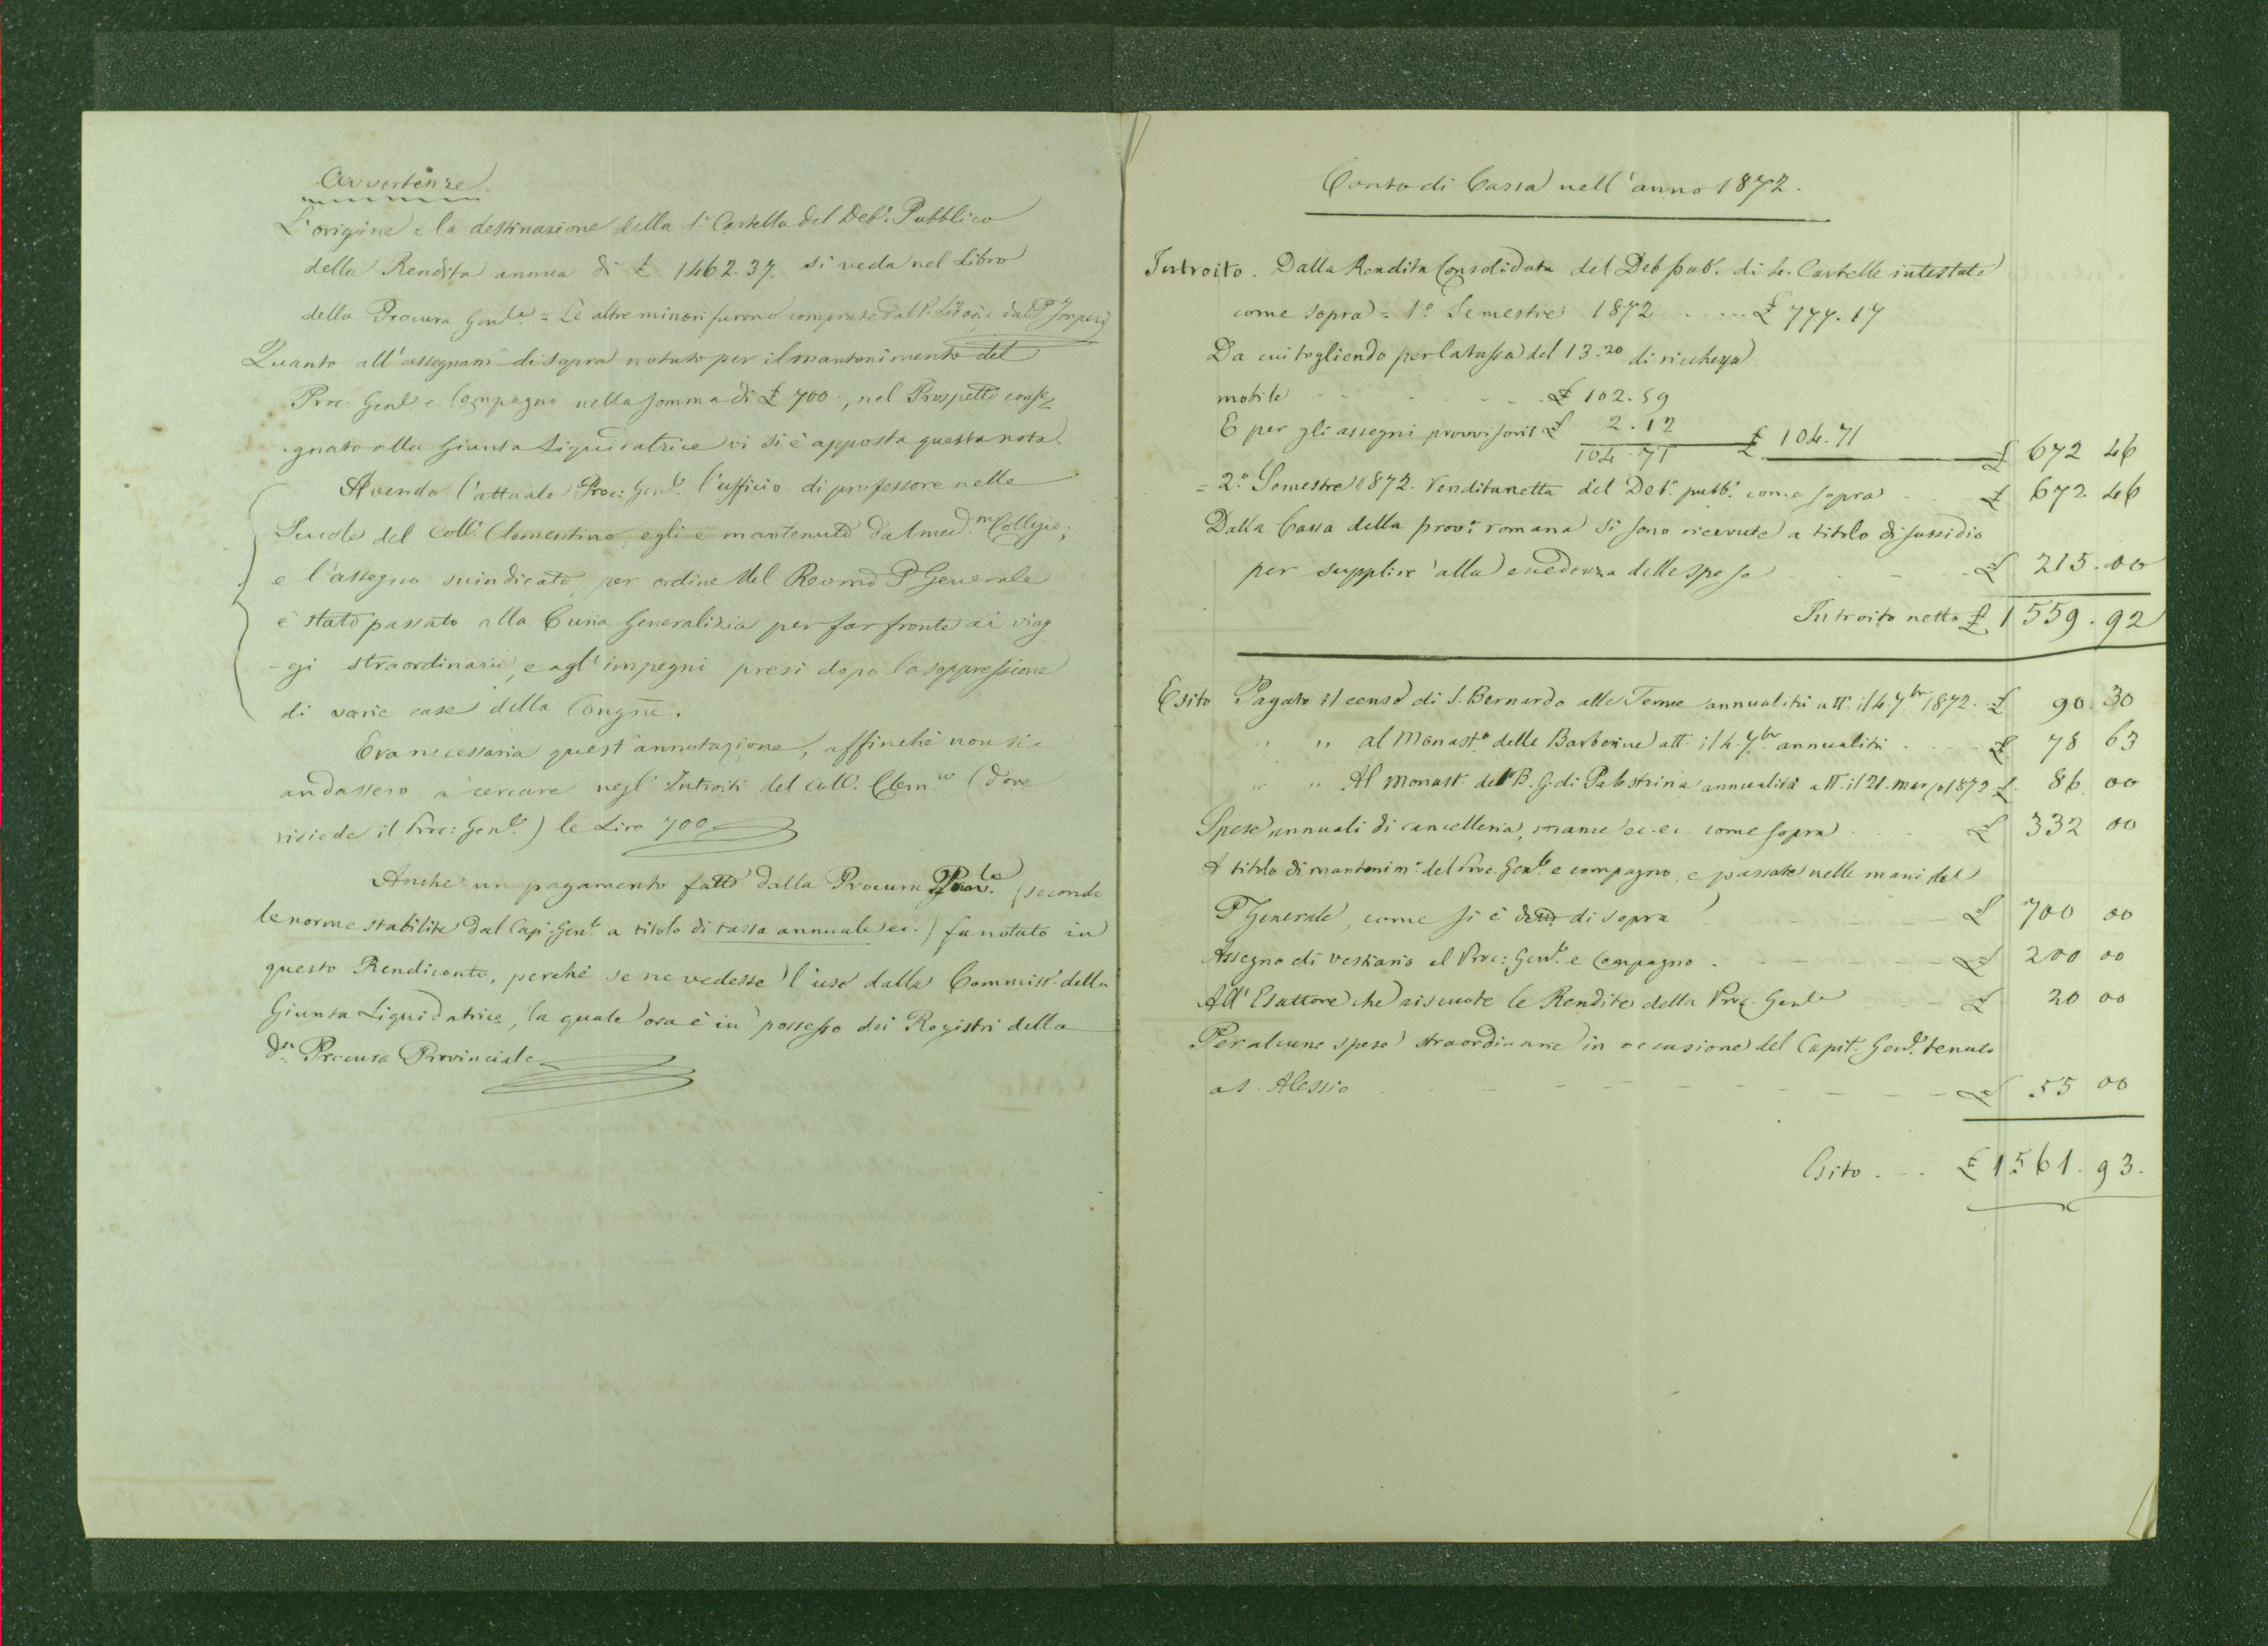 Avvertenze.
L'origine e la destinazione della 1ª Cartella del Deb.° Pubblico
della Rendita annua di £ 1462.37. si veda nel Libro
della Procura Gen.le = Le altre minori furono comprate dal P. Libois, e dal P.
Quanto all'assegnam.° di sopra notato per il mantenimento del
Proc. Gen.le e Compagno nella somma di £ 700., nel Prospetto conse=
gnato alla Giunta Liquidatrice vi si è apposta questa nota.
Avendo l'attuale Proc: Gen.le l'ufficio di professore nelle
Scuole del Coll.° Clementino, egli è mantenuto dal med.m Collegio;
e l'assegno suindicato, per ordine del Revmo P. Generale
è stato passato alla Curia Generalizia per far fronte ai viag
-gi straordinarii, e agl'impegni presi dopo la soppressione
di varie case della Congñe.
Era necessaria quest'annotazione, affinchè non si
andassero a cercare negl'Introiti del Coll.° Clem.no (dove
risiede il Proc: Gen.le) le Lire 700
Anche un pagamento fatto dalla Procura Prov.le (secondo
le norme stabilite dal Cap: Gen.le a titolo di tassa annuale ec.) fu notato in
questo Rendiconto, perchè se ne vedesse l'uso dalla Commiss.e della
Giunta Liquidatrice, la quale ora è in possesso dei Registri della
d.a Procura Provinciale
Conto di Cassa nell'anno 1872.
Introito. Dalla Rendita Consolidata del Deb pub.° di 4. Cartelle intestate
come sopra = 1.° Semestre 1872 ..... £ 777.17
Da cui togliendo per la tassa del 13.20 di ricchezza
mobile - - - - £ 102.59
E per gli assegni provvisorii £ 2.12 £ 104.71 £ 672 46
104.71
= 2.° Semestre 1872. Rendita netta del Deb.° pubb.° come sopra £ 672.46
Dalla Cassa della prov.a romana si sono ricevute a titolo di sussidio
per supplire alla eccedenza delle spese - - £ 215.00
Introito netto £ 1559.92
Esito Pagato il censo di S. Bernardo alle Terme annualità att. il 4. 7.bre 1872. £ 90.30
" " al Monast.° delle Barberine att. il 4. 7.bre annualità . . . £ 78 63
" " Al Monast. del B. G. di Palestrina annualità att. il 21. marzo 1872 £ 86 00
Spese annuali di cancelleria, mance ec. ec. come sopra . . £ 332 00
A titolo di mantenim.° del Proc. Gen.le e compagno, e passate nelle mani del
P Generale, come si è detto di sopra - - £ 700 00
Assegno di vestiario al Proc: Gen.le e Compagno . - - - £ 200 00
All'Esattore che riscuote le Rendite della Proc. Gen.le - - £ 20 00
Per alcune spese straordinarie in occasione del Capit. Gen.le tenuto
a S. Alessio - - - - - £ 55 00
Esito . . . £ 1561.93.